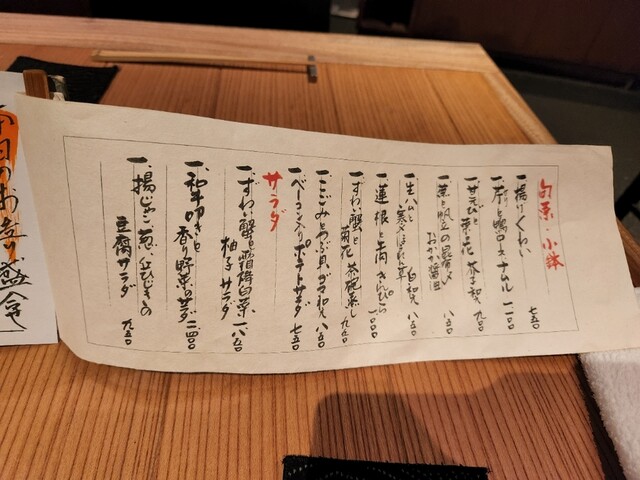 旬菜・小鉢
一、揚げくわい 七五〇
一、芹と鴨ロースナムル 一一〇〇
一、甘えびと菜の花 芥子和え 九〇〇
一、蕪と帆立の昆布〆
おかか醤油 八五〇
一、生ハムと
寒〆ほうれん草 白和え 八五〇
一、蓮根と牛肉 きんぴら 一〇〇〇
一、ずわい蟹と
菊花 茶碗蒸し 九五〇
一、こごみとつぶ貝 ゴマ和え 八五〇
一、ベーコン入りポテトサラダ 七五〇
サラダ
一、ずわい蟹と霜降白菜
柚子サラダ 一八五〇
一、和牛叩きと
香り野菜のサラダ 二四〇〇
一、揚じゃこ、葱、紅ひじきの
豆腐サラダ 九五〇
本日のお造り盛合せ